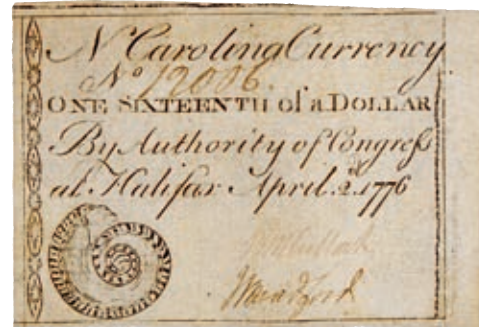 N Carolina Currency
No 12006.
ONE SIXTEENTH of a DOLLAR
By Authority of Congress
at Halifax April.2d.1776